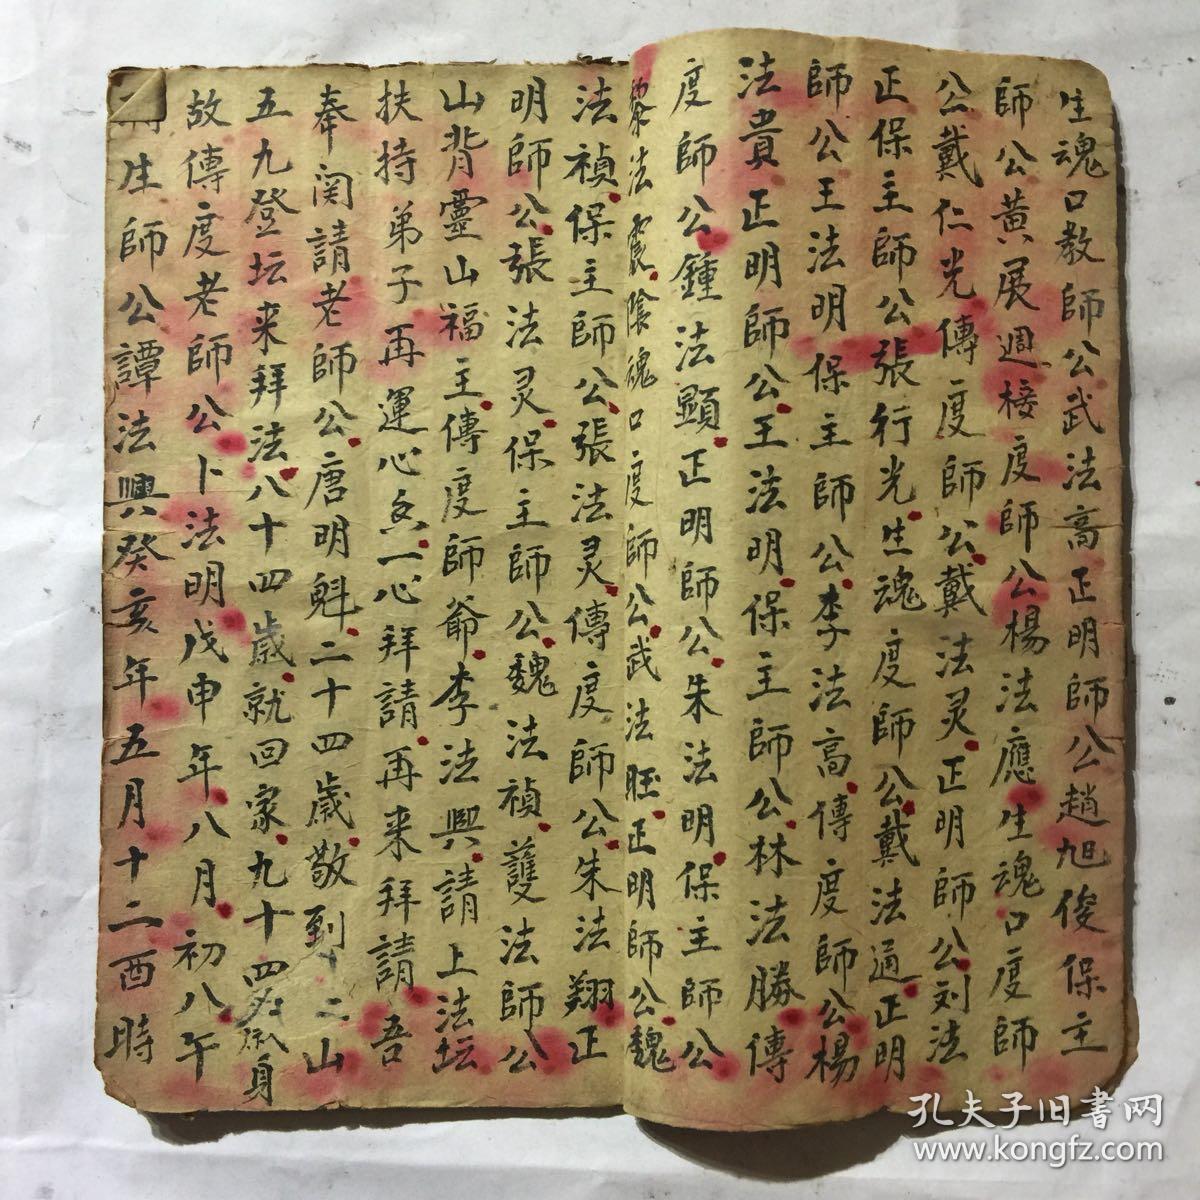 生魂口教師公武法高正明師公趙旭俊保主
師公黄展週接度師公楊法應生魂口度師
公戴仁光傳度師公戴法灵正明師公刘法
正保主師公張行光生魂度師公戴法通正明
師公王法明保主師公李法高傳度師公楊
法貴正明師公王法明保主師公林法勝傳
度師公鍾法顯正明師公朱法明保主師公
黎法震陰魂口度師公武法旺正明師公魏
法禎保主師公張法灵傳度師公朱法翔正
明師公張法灵保主師公魏法禎護法師公
山背靈山福主傳度師爺李法興請上法坛
扶持弟子再運心香一心拜請再来拜請吾
奉関請老師公唐明魁二十四歲敬到十二山
五九登坛来拜法八十四歲就回家九十四歲身
故傳度老師公卜法明戊申年八月初八午
生師公譚法興癸亥年五月十二酉時
孔夫子旧書网
www.kongfz.com